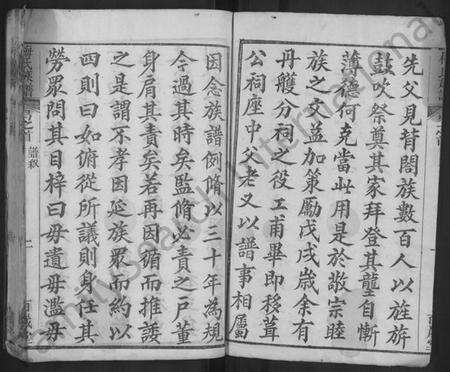 先父見背闔族數百人以旌旂
鼓吹祭奠其家拜登其壟自慚
薄德何克當此用是於敬宗睦
族之交益加策勵戊戌歲余有
丹艧分祠之役工甫畢即移葺
公祠座中父老又以譜事相屬
因念族譜例脩以三十年為規
今過其時矣監脩必責之戶董
身肩其責矣若再因循而推諉
之是謂不孝因延族眾而約以
四則曰如俯從所議則身任其
勞眾問其目梓曰毋遺毋濫毋
譜敘
二